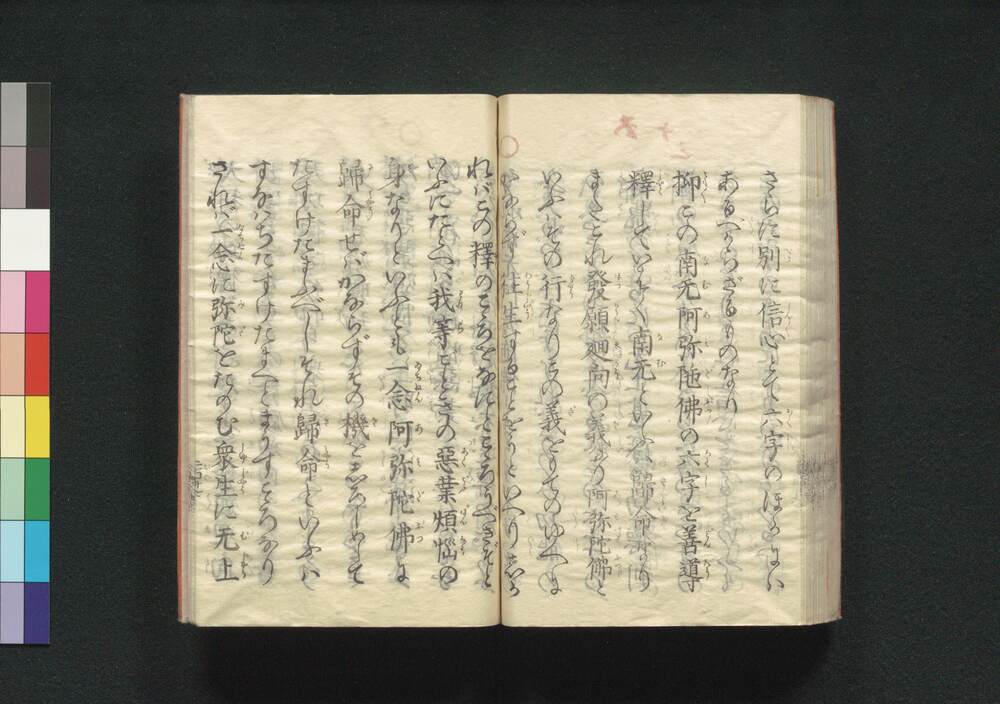 さらに別に信心とて六字のほかには
あるべからざるものなり
抑この南无阿弥陀佛の六字を善導
釋していはく南无といふは歸命なり
またこれ發願廻向の義なり阿弥陀佛と
いふはその行なりこの義をもてのゆへに
かならず往生することをうといへりしか
ればこの釋のこゝろをなにとこゝろうべきぞと
いふにたとへば我等ごときの惡業煩惱の
身なりといふとも一念阿弥陀佛に
歸命せばかならずその機をしろしめして
たすけたまふべしそれ歸命といふは
すなはちたすけたまへとまうすこゝろなり
されば一念に弥陀をたのむ衆生に无上